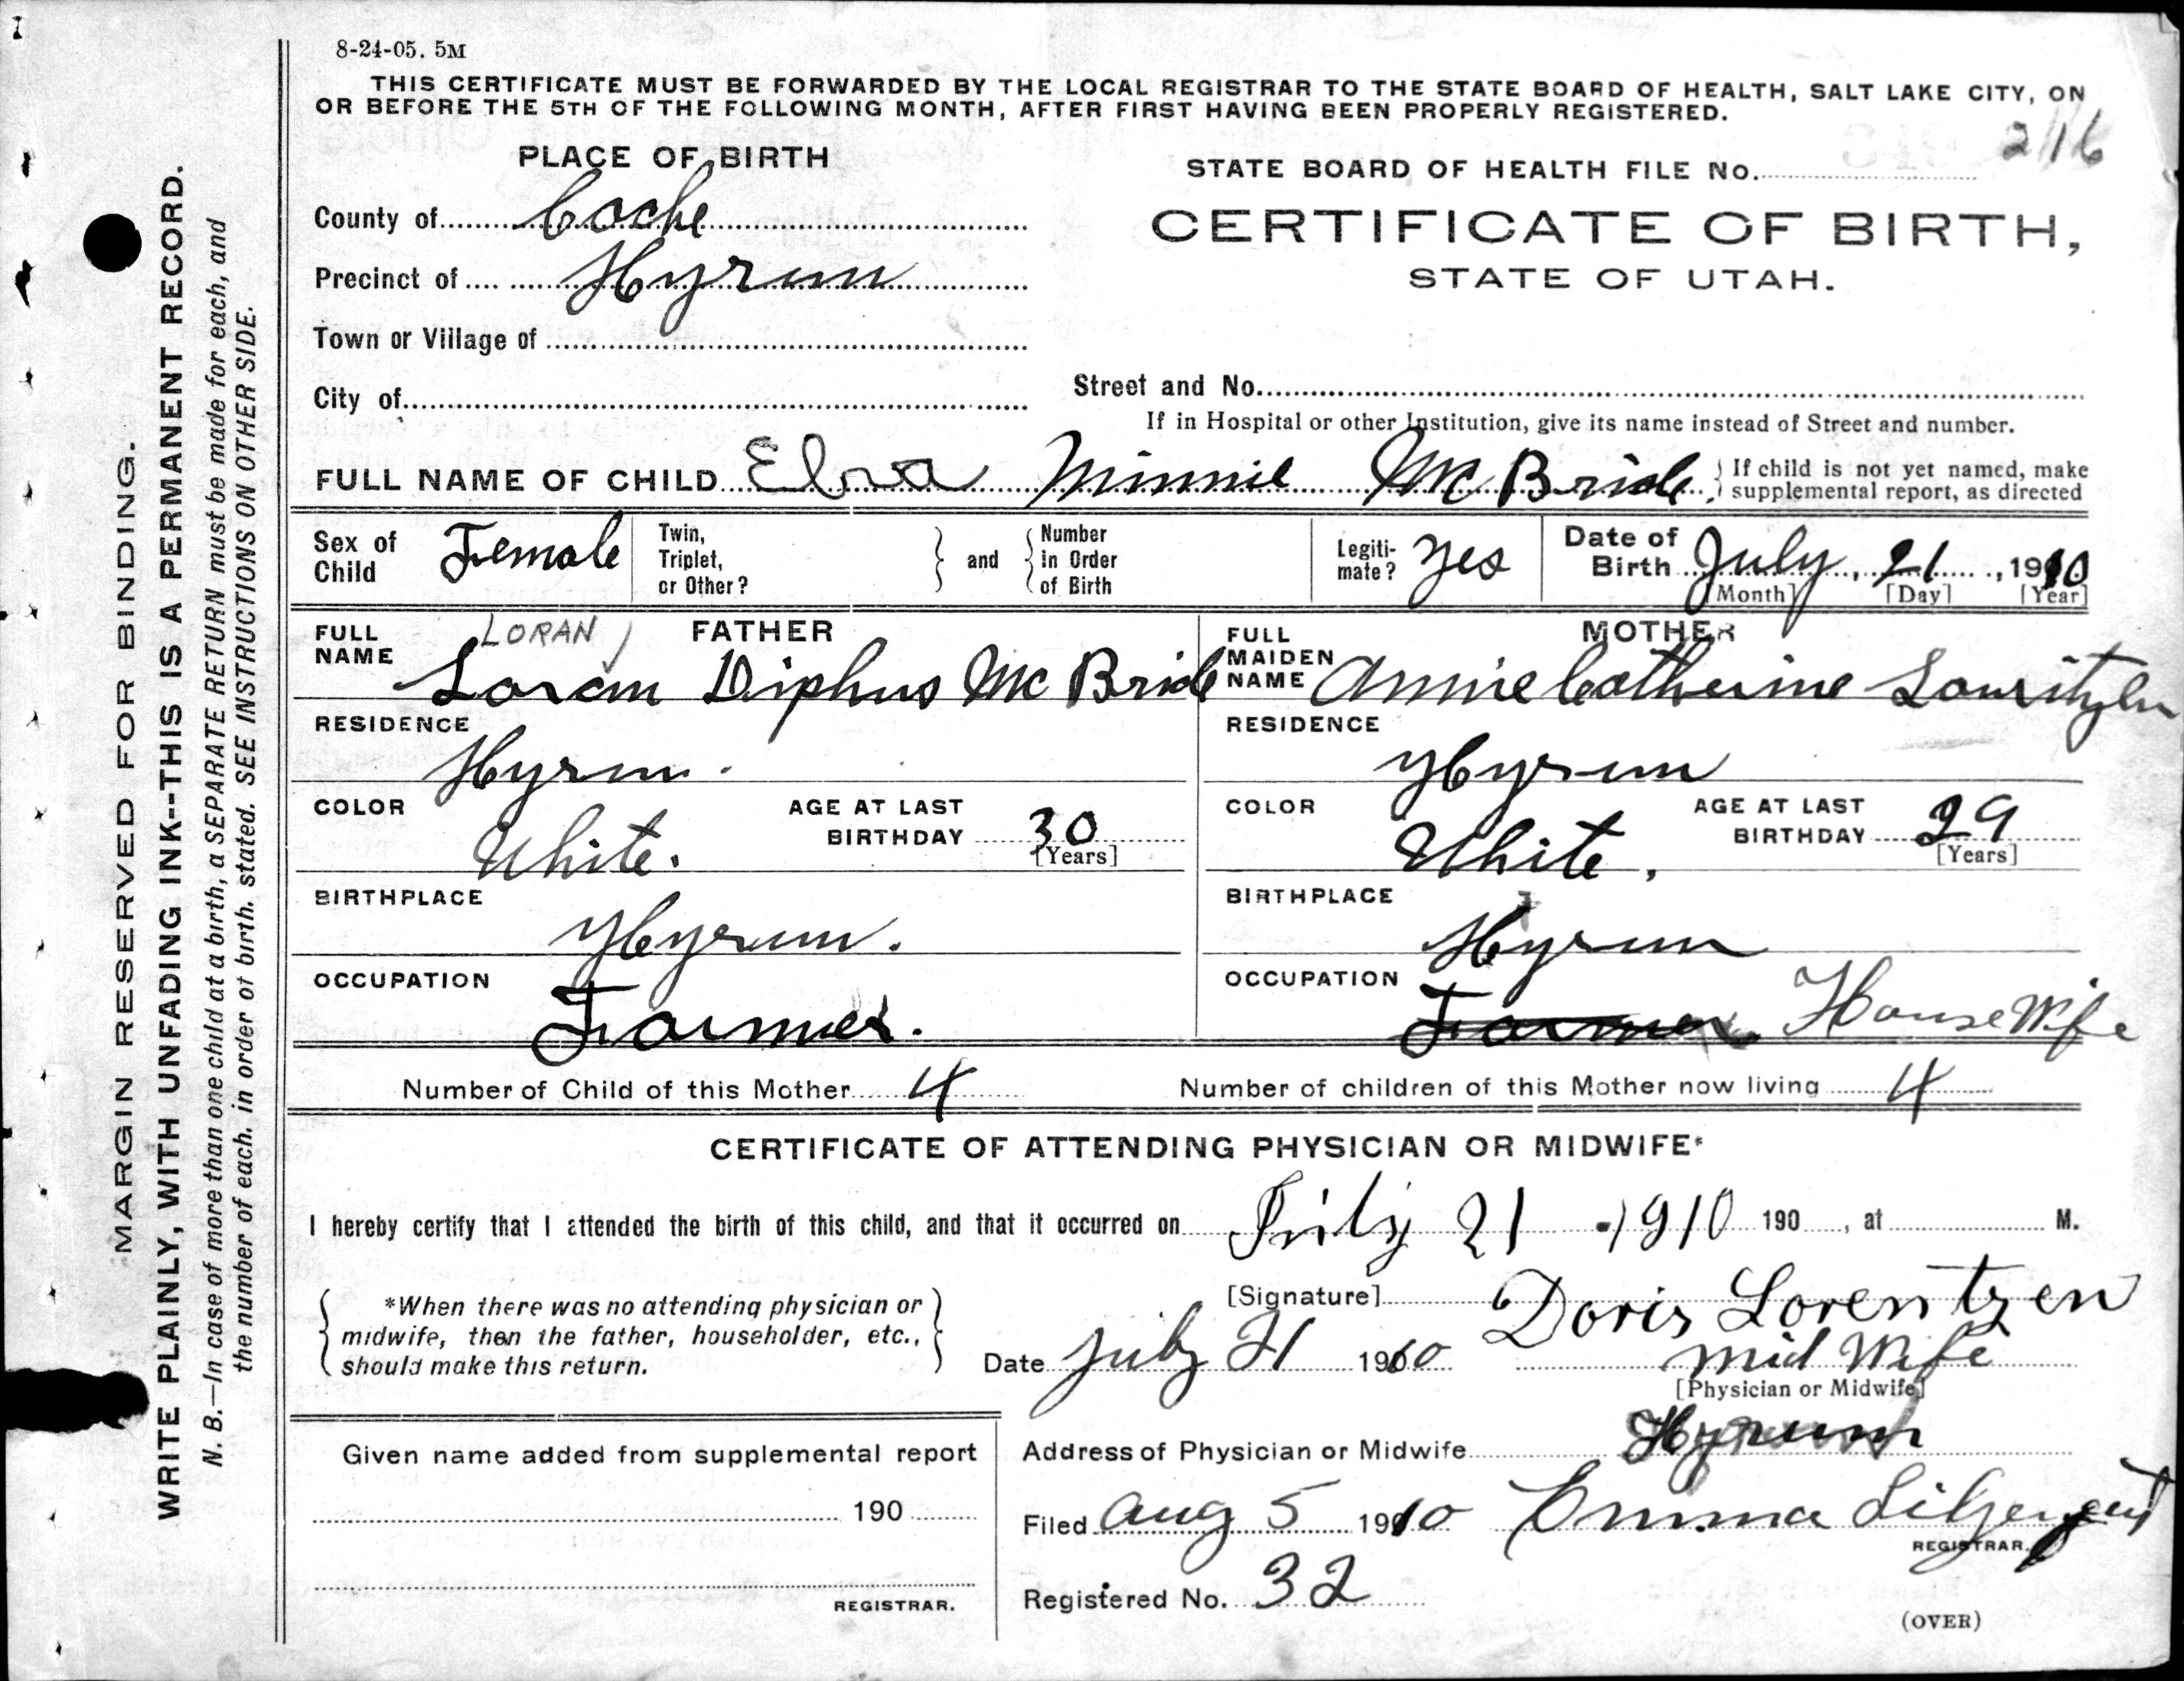 8-24-05. 5M
THIS CERTIFICATE MUST BE FORWARDED BY THE LOCAL REGISTRAR TO THE STATE BOARD OF HEALTH, SALT LAKE CITY, ON
OR BEFORE THE 5TH OF THE FOLLOWING MONTH, AFTER FIRST HAVING BEEN PROPERLY REGISTERED.
MARGIN RESERVED FOR BINDING.
WRITE PLAINLY, WITH UNFADING INK--THIS IS A PERMANENT RECORD.
N. B.—In case of more than one child at a birth, a SEPARATE RETURN must be made for each, and
the number of each, in order of birth, stated. SEE INSTRUCTIONS ON OTHER SIDE.
PLACE OF BIRTH
County of Cache
Precinct of Hyrum
Town or Village of
City of
STATE BOARD OF HEALTH FILE No. 216
CERTIFICATE OF BIRTH,
STATE OF UTAH.
Street and No.
If in Hospital or other Institution, give its name instead of Street and number.
FULL NAME OF CHILD Elva Minnie McBride
If child is not yet named, make
supplemental report, as directed
Sex of Child Female
Twin, Triplet, or Other?
and
Number in Order of Birth
Legitimate? Yes
Date of Birth July, 21, 1910
[Month] [Day] [Year]
FATHER
FULL NAME
LORAN
Loran Diphus McBride
RESIDENCE
Hyrum.
COLOR
White.
AGE AT LAST BIRTHDAY 30
[Years]
BIRTHPLACE
Hyrum.
OCCUPATION
Farmer.
MOTHER
FULL MAIDEN NAME Annie Catherine Lauritzen
RESIDENCE
Hyrum
COLOR
White,
AGE AT LAST BIRTHDAY 29
[Years]
BIRTHPLACE
Hyrum
OCCUPATION
Farmer House Wife
Number of Child of this Mother 4
Number of children of this Mother now living 4
CERTIFICATE OF ATTENDING PHYSICIAN OR MIDWIFE*
I hereby certify that I attended the birth of this child, and that it occurred on July 21 - 1910 190 , at M.
*When there was no attending physician or
midwife, then the father, householder, etc.,
should make this return.
[Signature] Doris Lorentzen
Date July 21 1910 Mid Wife
[Physician or Midwife]
Given name added from supplemental report
190
REGISTRAR.
Address of Physician or Midwife Hyrum
Filed Aug 5 1910 Emma
REGISTRAR.
Registered No. 32
(OVER)